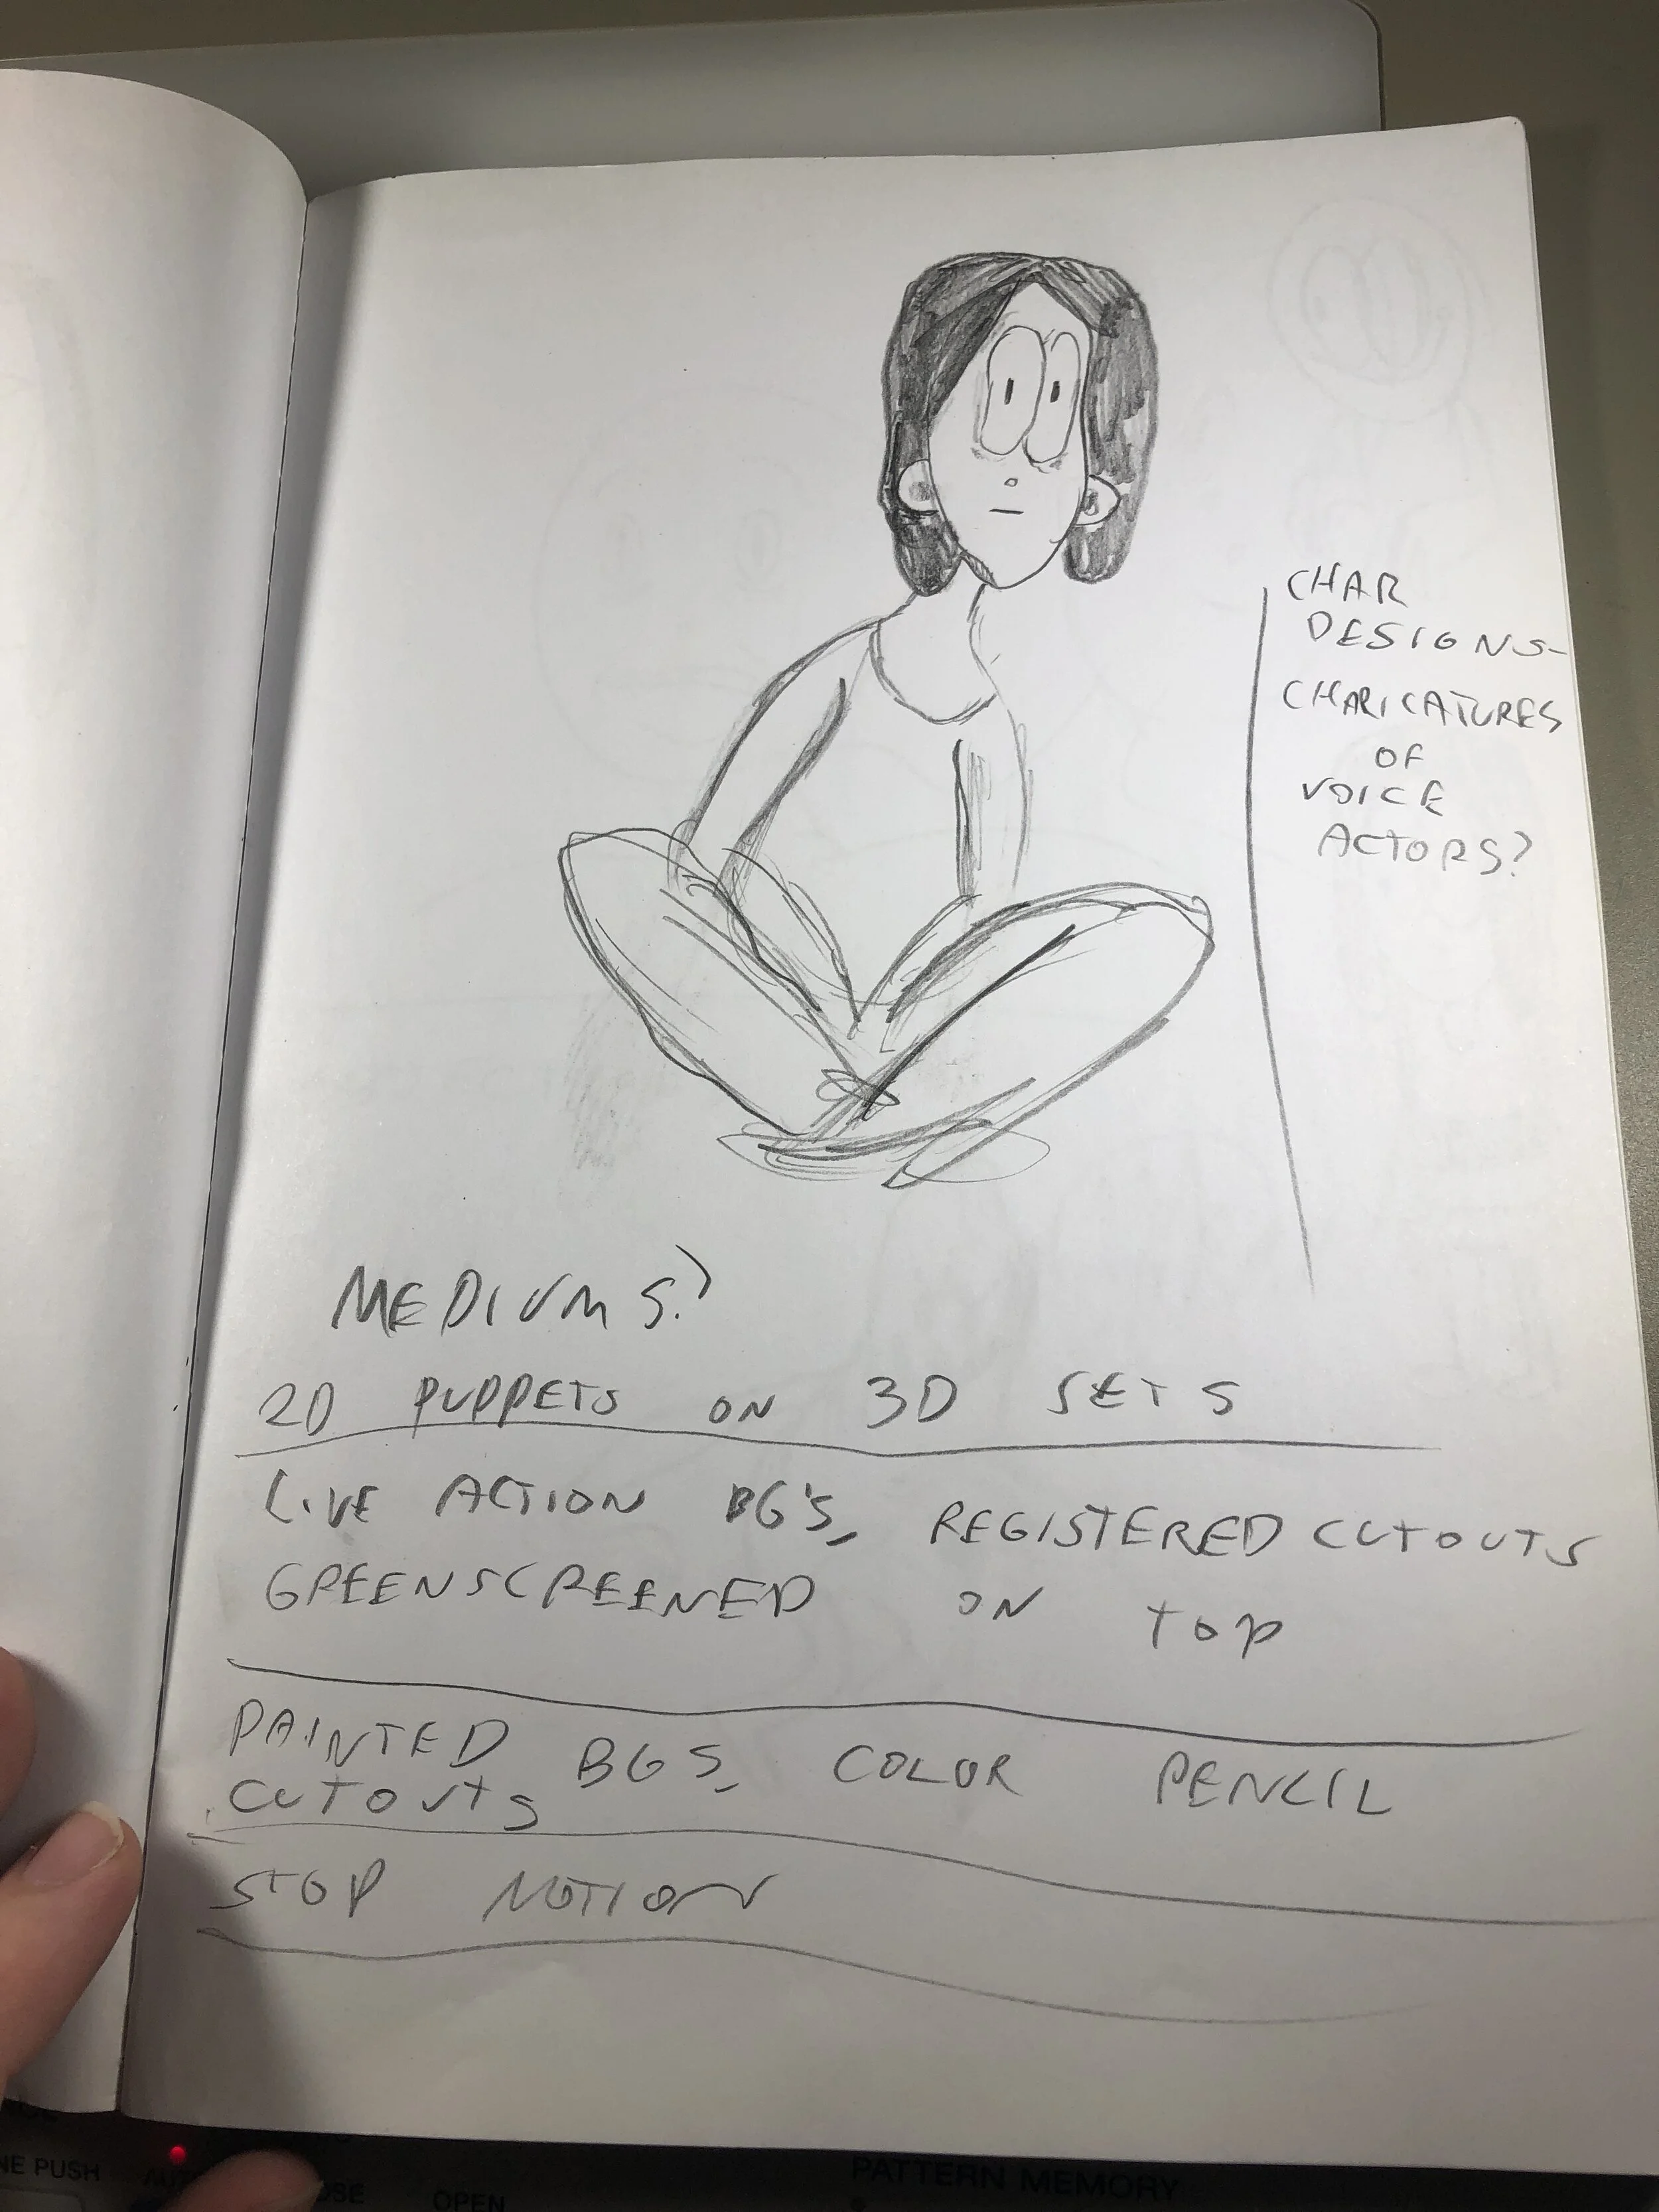 CHAR
DESIGNS-
CHARICATURES
OF
VOICE
ACTORS?
MEDIUMS?
2D PUPPETS ON 3D SETS
LIVE ACTION BG'S, REGISTERED CUTOUTS
GREENSCREENED ON TOP
PAINTED BGS, COLOR PENCIL
CUTOUTS
STOP MOTION
NE PUSH
OPEN
PATTERN MEMORY